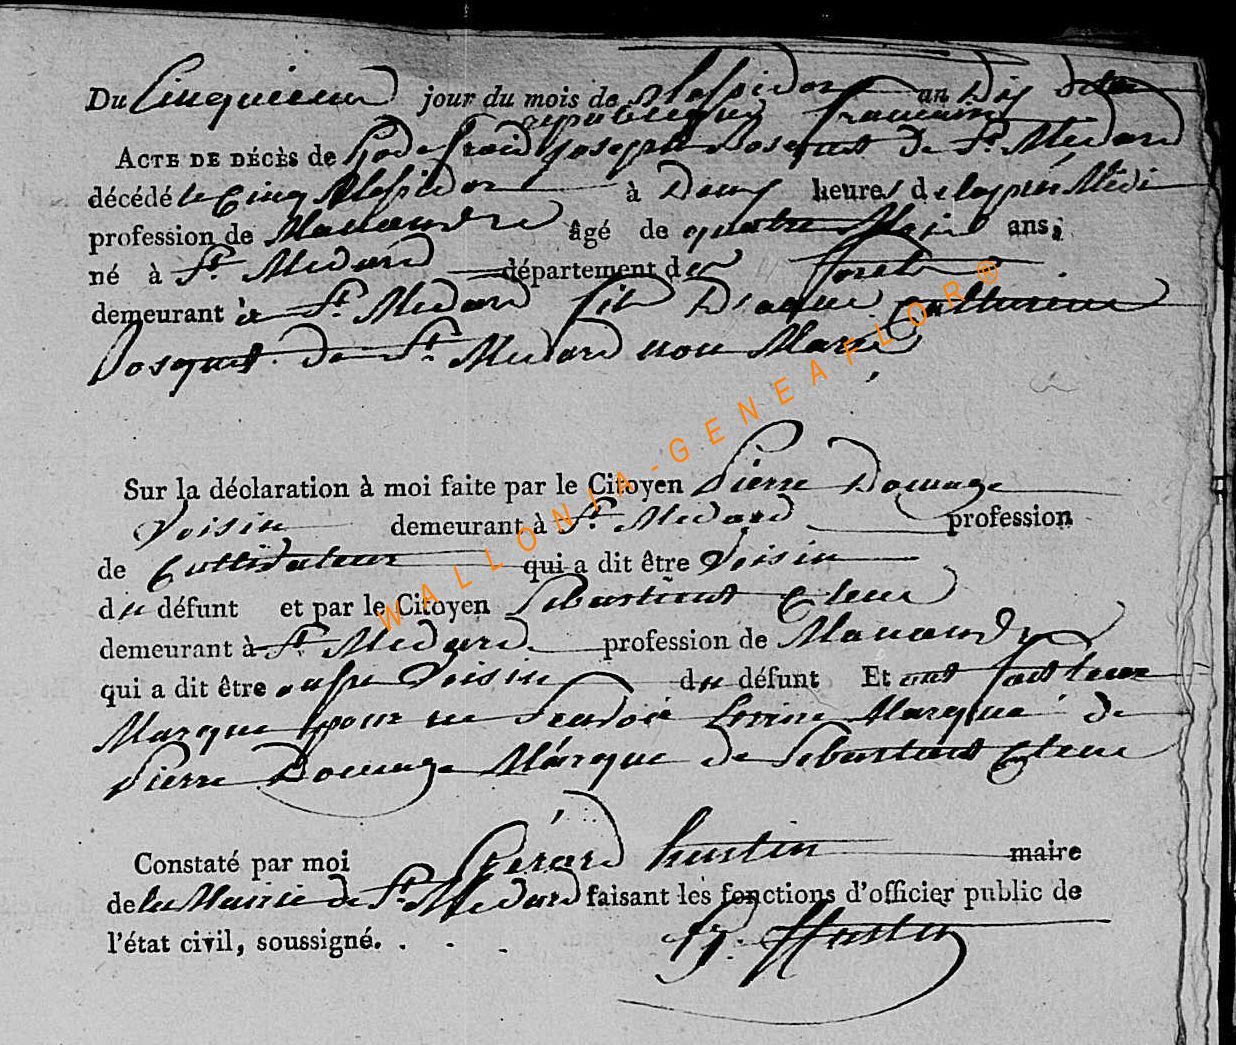 Du Cinquieme jour du mois de Messidor an Dix de la
republique francaise
ACTE DE DÉCÈS de Godefroid Joseph Bosquet de St Medard
décédé le Cinq Messidor à Deux heures de lapres Midi
profession de Manoeuvre âgé de quatre ans,
né à St Medard département des forets
demeurant à St Medard fils De Catherine
Bosquet de St Medard non Marié
Sur la déclaration à moi faite par le Citoyen Pierre Douwage
Voisin demeurant à St Medard profession
de Cultivateur qui a dit être Voisin
du défunt et par le Citoyen Sebastient
demeurant à St Medard profession de Manoeuvre
qui a dit être aussi Voisin du défunt Et ont fait leur
Marque pour ne Scavoir Ecrire Marque de
Pierre Douwage Marque de Sebastient
Constaté par moi Gérard hustin maire
de la Mairie de St Medard faisant les fonctions d'officier public de
l'état civil, soussigné. . - .
G. Hustin
WALLONIA-GENEAFLOR®